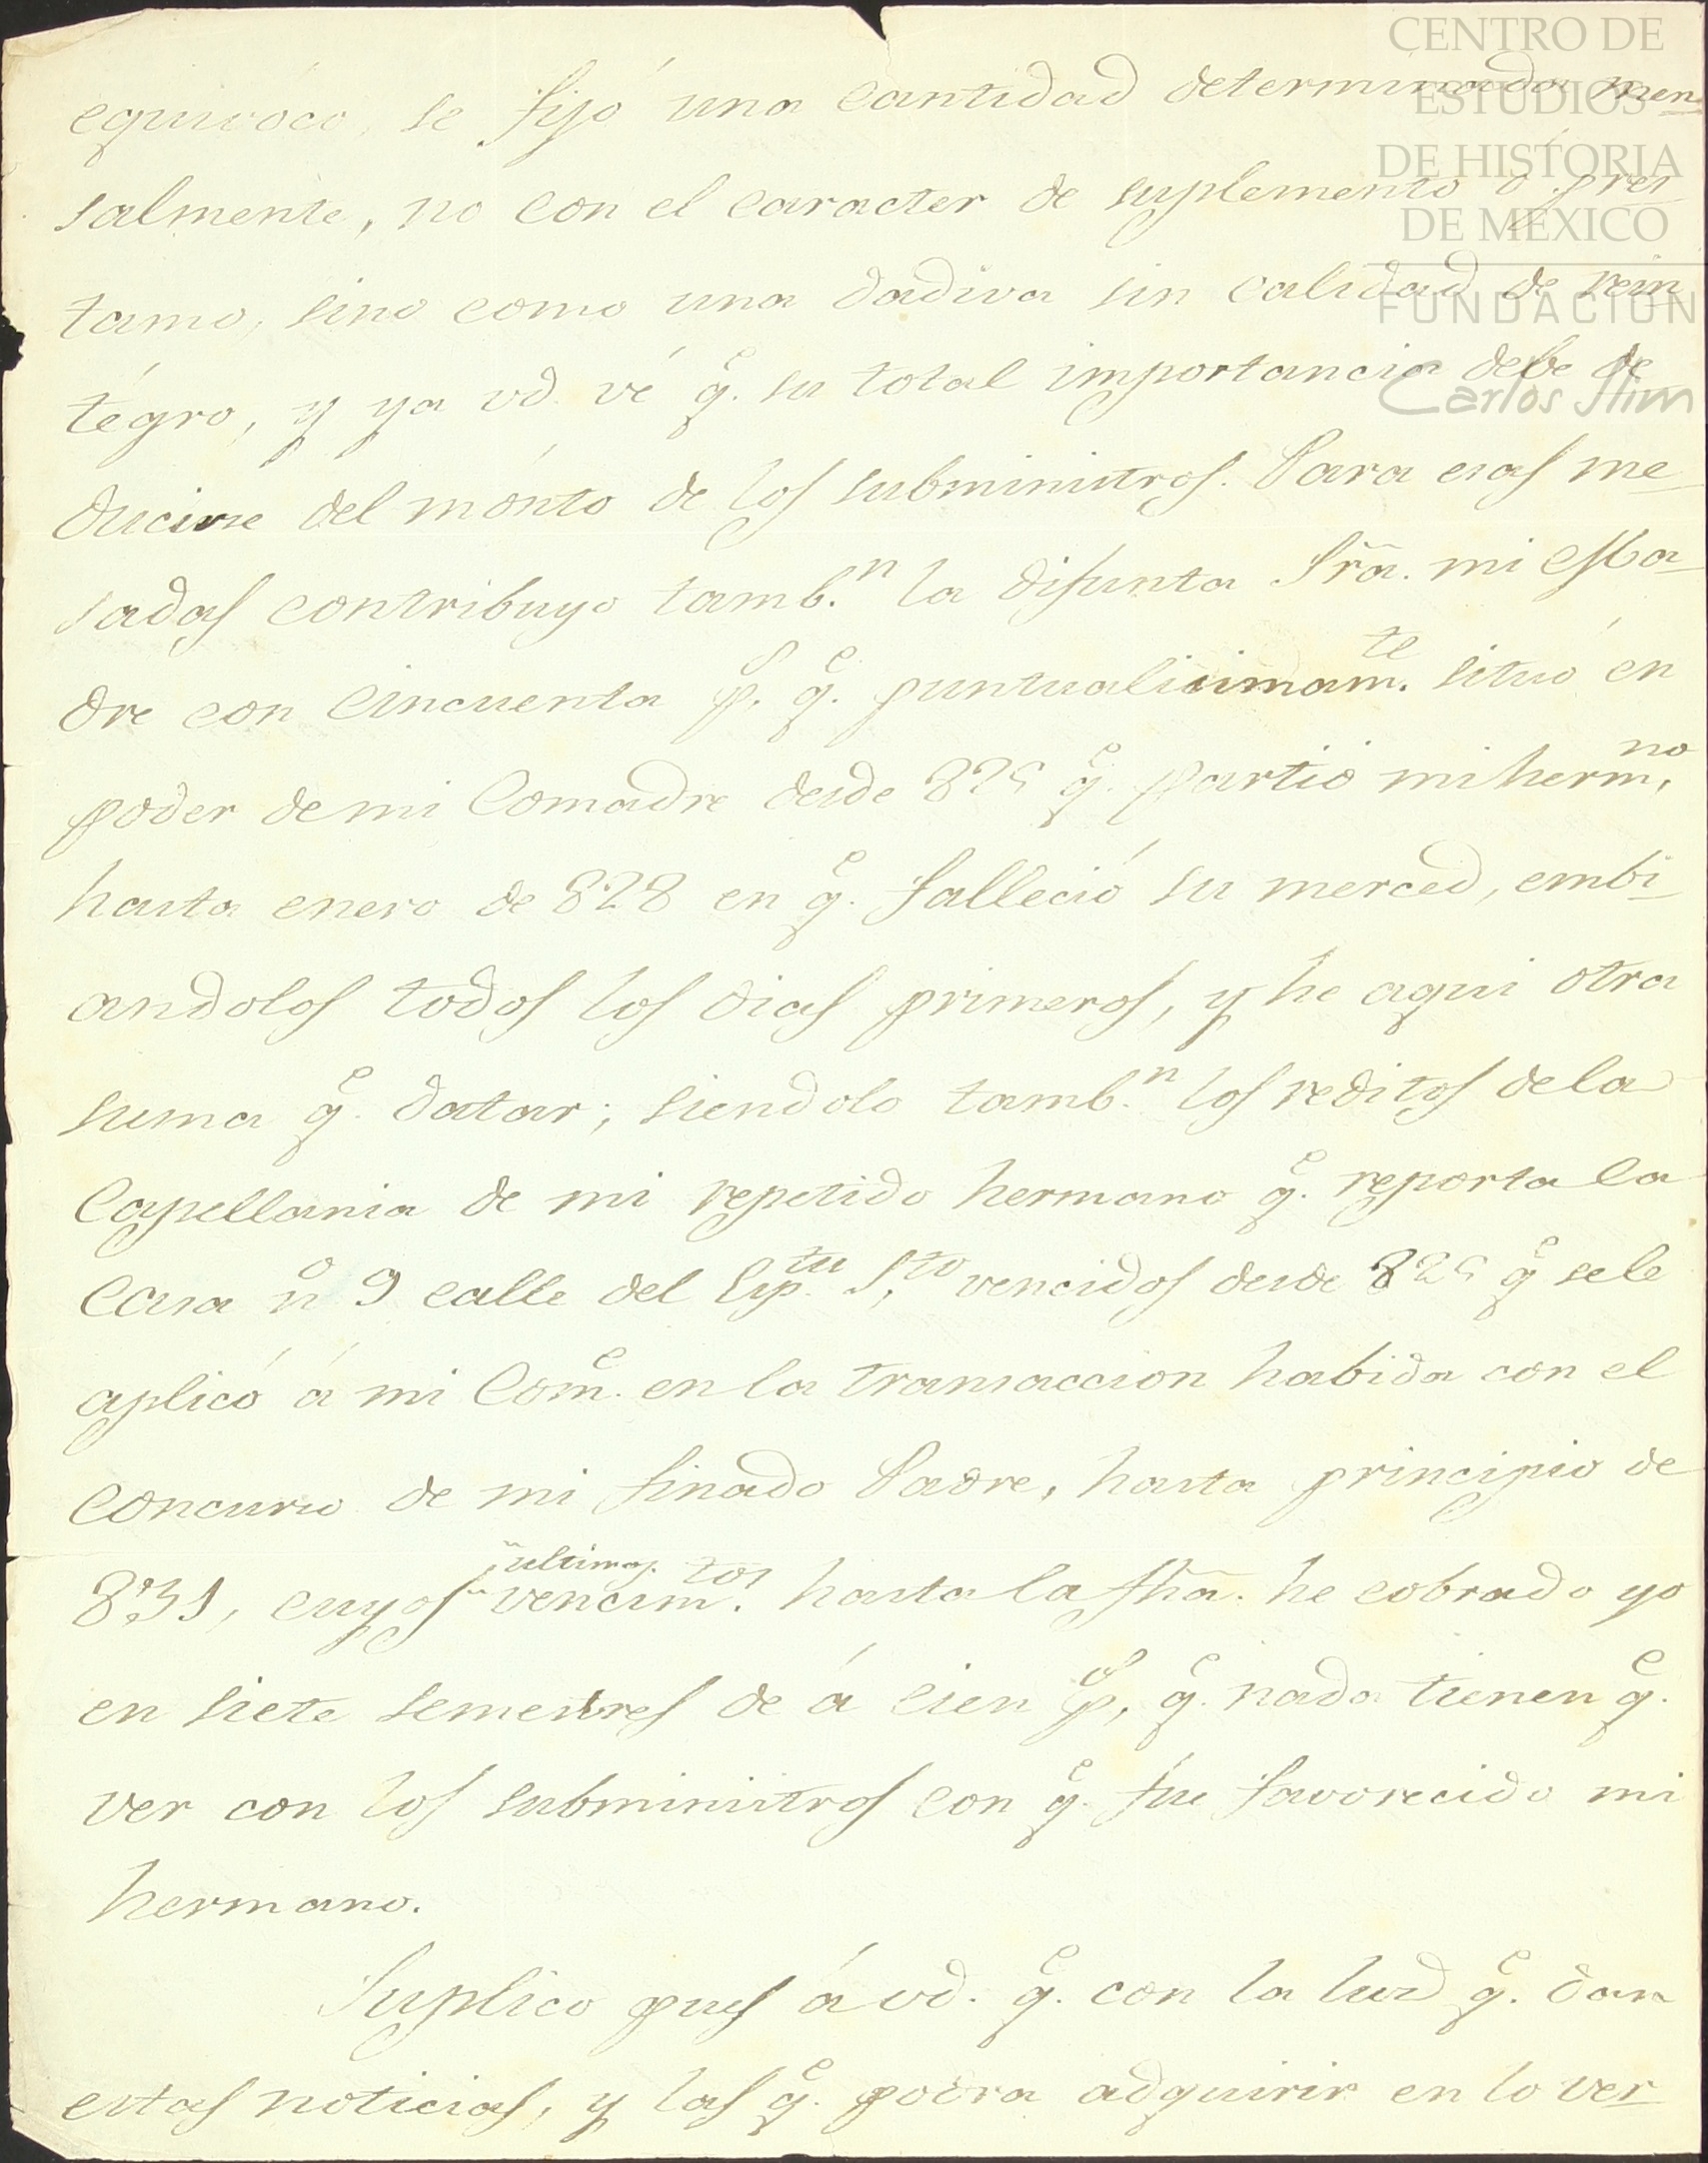 CENTRO DE
ESTUDIOS
DE HISTORIA
DE MÉXICO
FUNDACIÓN
Carlos Slim
equivóco, se fijó una cantidad determinada men
salmente, no con el caracter de suplemento ó pres
tamo, sino como una dadiva sin calidad de rein
tégro, y ya vd. vé q.e su total importancia debe de
ducirse del mónto de los subministros. Para esas me
sadas contribuyo tamb.n la difunta Srã. mi Ma
dre con cincuenta p.s q.e puntualisimam.te situó en
poder de mi Comadre desde 825 q.e partió mi herm.no
hasta enero de 828 en q.e falleció su merced, embi
andolos todos los dias primeros, y he aqui otra
suma q.e datar; siendolo tamb.n los reditos dela
Capellania de mi repetido hermano q.e reporta la
Casa nº 9 calle del Esp.tu S.to vencidos desde 825 q.e sele
aplicó á mi Com.e en la transaccion habida con el
concurso de mi finado Padre, hasta principio de
831, cuyos ultimos vencim.tos hasta la fhã. he cobrado yo
en siete semestres de á cien p.s, q.e nada tienen q.e
ver con los subministros con q.e fue favorecido mi
hermano.
Suplico pues á vd. q.e con la luz q.e dan
estas noticias, y las q.e podra adquirir en lo ver